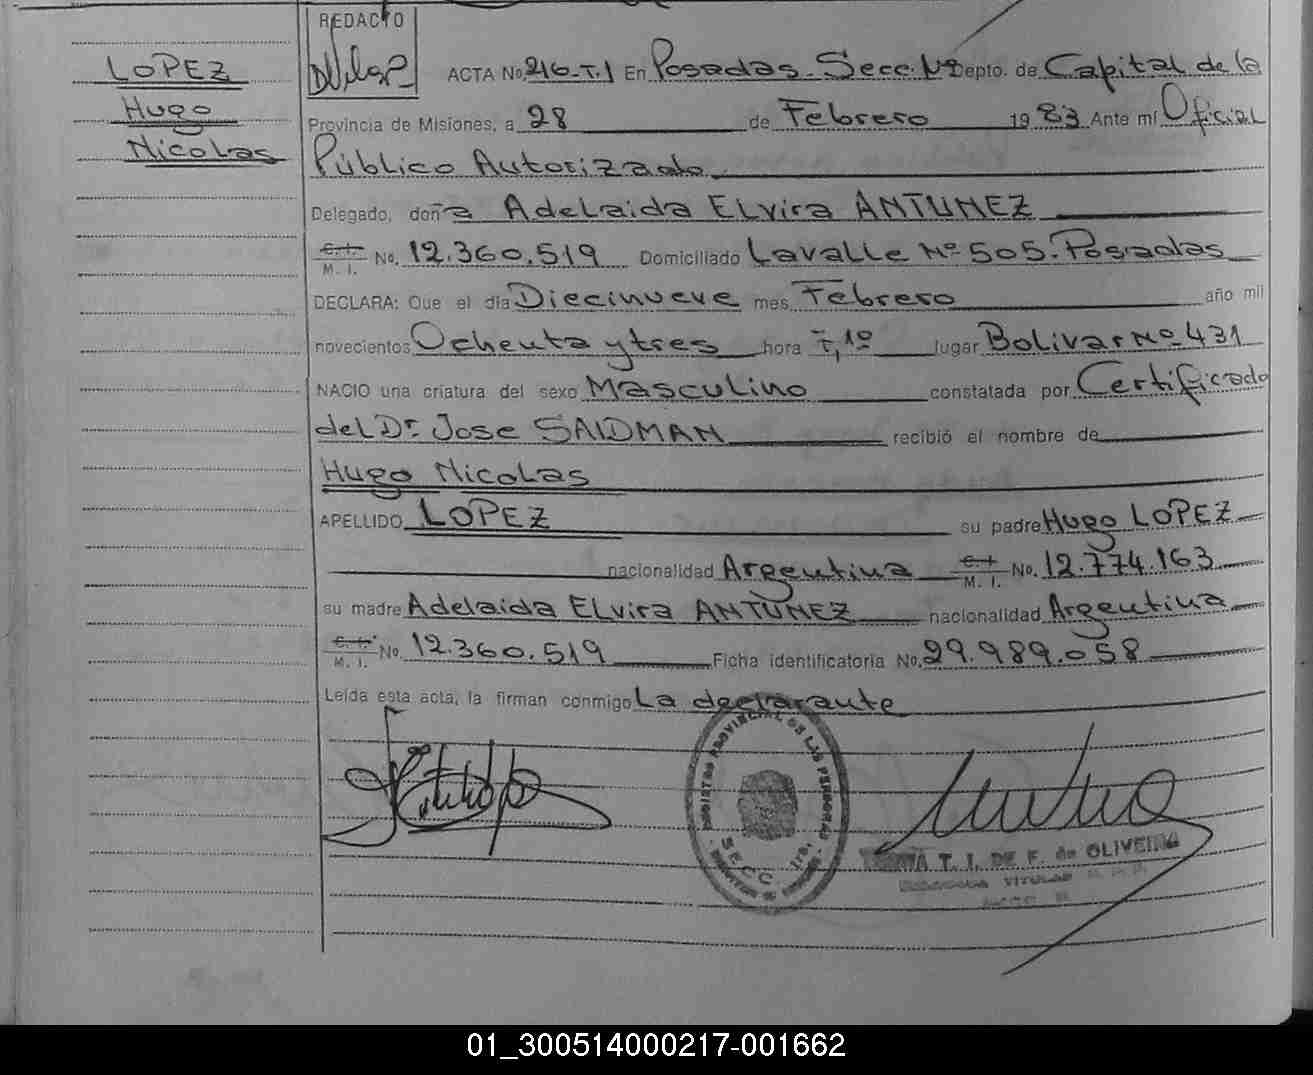 REDACTO
LOPEZ
Hugo
Nicolas
ACTA No. 216-T.1 En Posadas. Secc. 1ra Depto. de Capital de la
Provincia de Misiones, a 28 de Febrero 1983 Ante mí Oficial
Público Autorizado
Delegado, doña Adelaida Elvira ANTUNEZ
C. I. M. I. No. 12.360.519 Domiciliado Lavalle Nº 505. Posadas
DECLARA: Que el día Diecinueve mes Febrero año mil
novecientos Ochenta y tres hora lugar Bolivar Nº 431
NACIO una criatura del sexo Masculino constatada por Certificado
del Dr. Jose SAIDMAN recibió el nombre de
Hugo Nicolas
APELLIDO LOPEZ su padre Hugo LOPEZ
nacionalidad Argentina C. I. M. I. No. 12.774.163
su madre Adelaida Elvira ANTUNEZ nacionalidad Argentina
C. I. M. I. No. 12.360.519 Ficha identificatoria No. 29.989.058
Leída esta acta, la firman conmigo La declarante
REGISTRO PROVINCIAL DE LAS PERSONAS
SECC. 1ra.
T. I. DE F. de OLIVEIRA
TITULAR
01_300514000217-001662